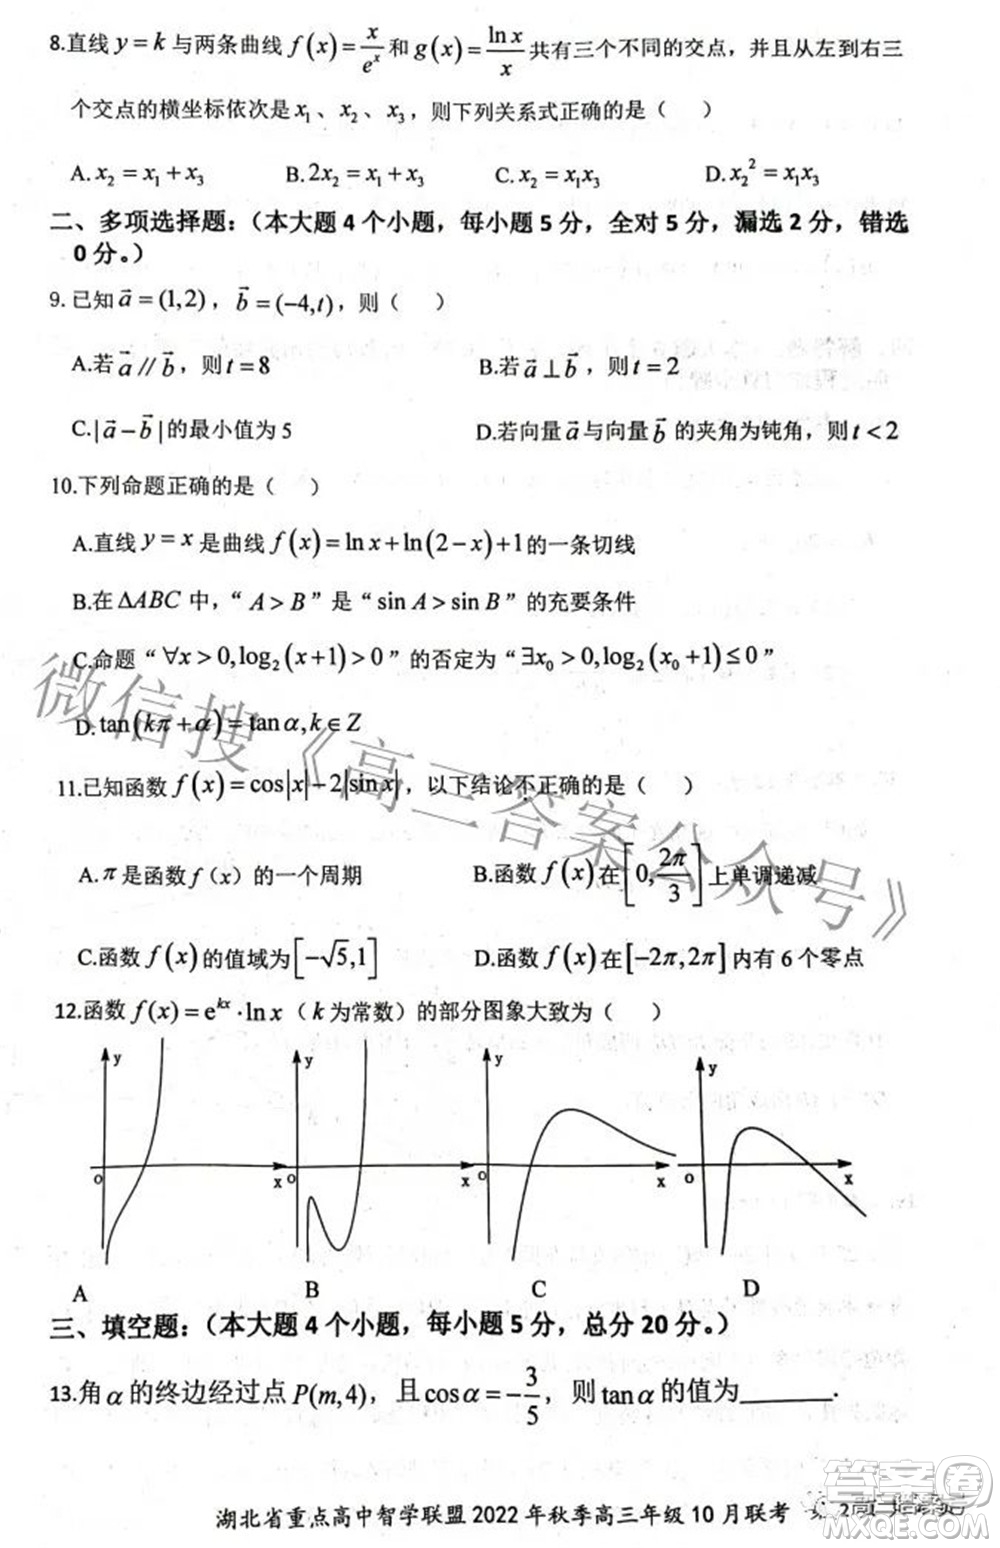 8.直线 y = k 与两条曲线 f(x) = x/e^x 和 g(x) = ln x/x 共有三个不同的交点，并且从左到右三
个交点的横坐标依次是 x₁、x₂、x₃，则下列关系式正确的是（ ）
A. x₂ = x₁ + x₃ B. 2x₂ = x₁ + x₃ C. x₂ = x₁x₃ D. x₂² = x₁x₃
二、多项选择题：（本大题 4 个小题，每小题 5 分，全对 5 分，漏选 2 分，错选
0 分。）
9. 已知 a⃗ = (1,2)，b⃗ = (−4,t)，则（ ）
A.若 a⃗ // b⃗，则 t = 8 B.若 a⃗ ⊥ b⃗，则 t = 2
C.|a⃗ − b⃗| 的最小值为 5 D.若向量 a⃗ 与向量 b⃗ 的夹角为钝角，则 t < 2
10.下列命题正确的是（ ）
A.直线 y = x 是曲线 f(x) = ln x + ln(2−x) + 1 的一条切线
B.在 ΔABC 中，“ A > B ” 是 “ sin A > sin B ” 的充要条件
C.命题 “ ∀x > 0, log₂(x+1) > 0 ” 的否定为 “ ∃x₀ > 0, log₂(x₀+1) ≤ 0 ”
D. tan(kπ + α) = tan α, k ∈ Z
11.已知函数 f(x) = cos|x| − 2|sin x|，以下结论不正确的是（ ）
A. π 是函数 f（x）的一个周期 B.函数 f(x) 在 [0, 2π/3] 上单调递减
C.函数 f(x) 的值域为 [−√5, 1] D.函数 f(x) 在 [−2π, 2π] 内有 6 个零点
12.函数 f(x) = e^{kx} · ln x（ k 为常数）的部分图象大致为（ ）
y y y y
o x o x o x o x
A B C D
三、填空题：（本大题 4 个小题，每小题 5 分，总分 20 分。）
13.角 α 的终边经过点 P(m,4)，且 cos α = −3/5，则 tan α 的值为______.
湖北省重点高中智学联盟 2022 年秋季高三年级 10 月联考
微信搜《高三答案公众号》
答案圈